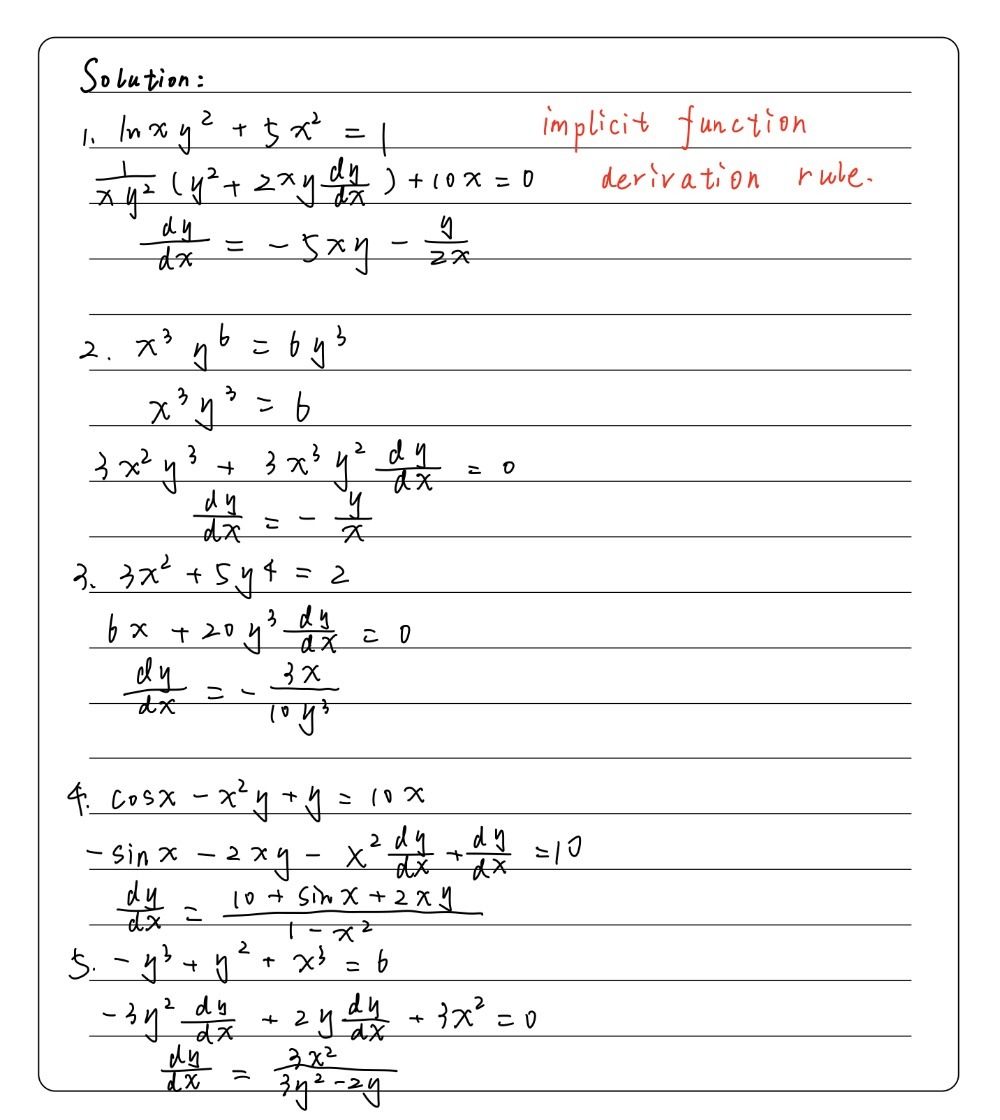 Solution:
1. ln x y² + 5x² = 1
implicit function
1/(xy²) (y² + 2xy dy/dx) + 10x = 0
derivation rule.
dy/dx = - 5xy - y/(2x)
2. x³ y⁶ = 6y³
x³y³ = 6
3x²y³ + 3x³y² dy/dx = 0
dy/dx = - y/x
3. 3x² + 5y⁴ = 2
6x + 20y³ dy/dx = 0
dy/dx = - 3x/(10y³)
4. cosx - x²y + y = 10x
- sin x - 2xy - x² dy/dx + dy/dx = 10
dy/dx = (10 + sin x + 2xy)/(1 - x²)
5. - y³ + y² + x³ = 6
- 3y² dy/dx + 2y dy/dx + 3x² = 0
dy/dx = 3x²/(3y² - 2y)